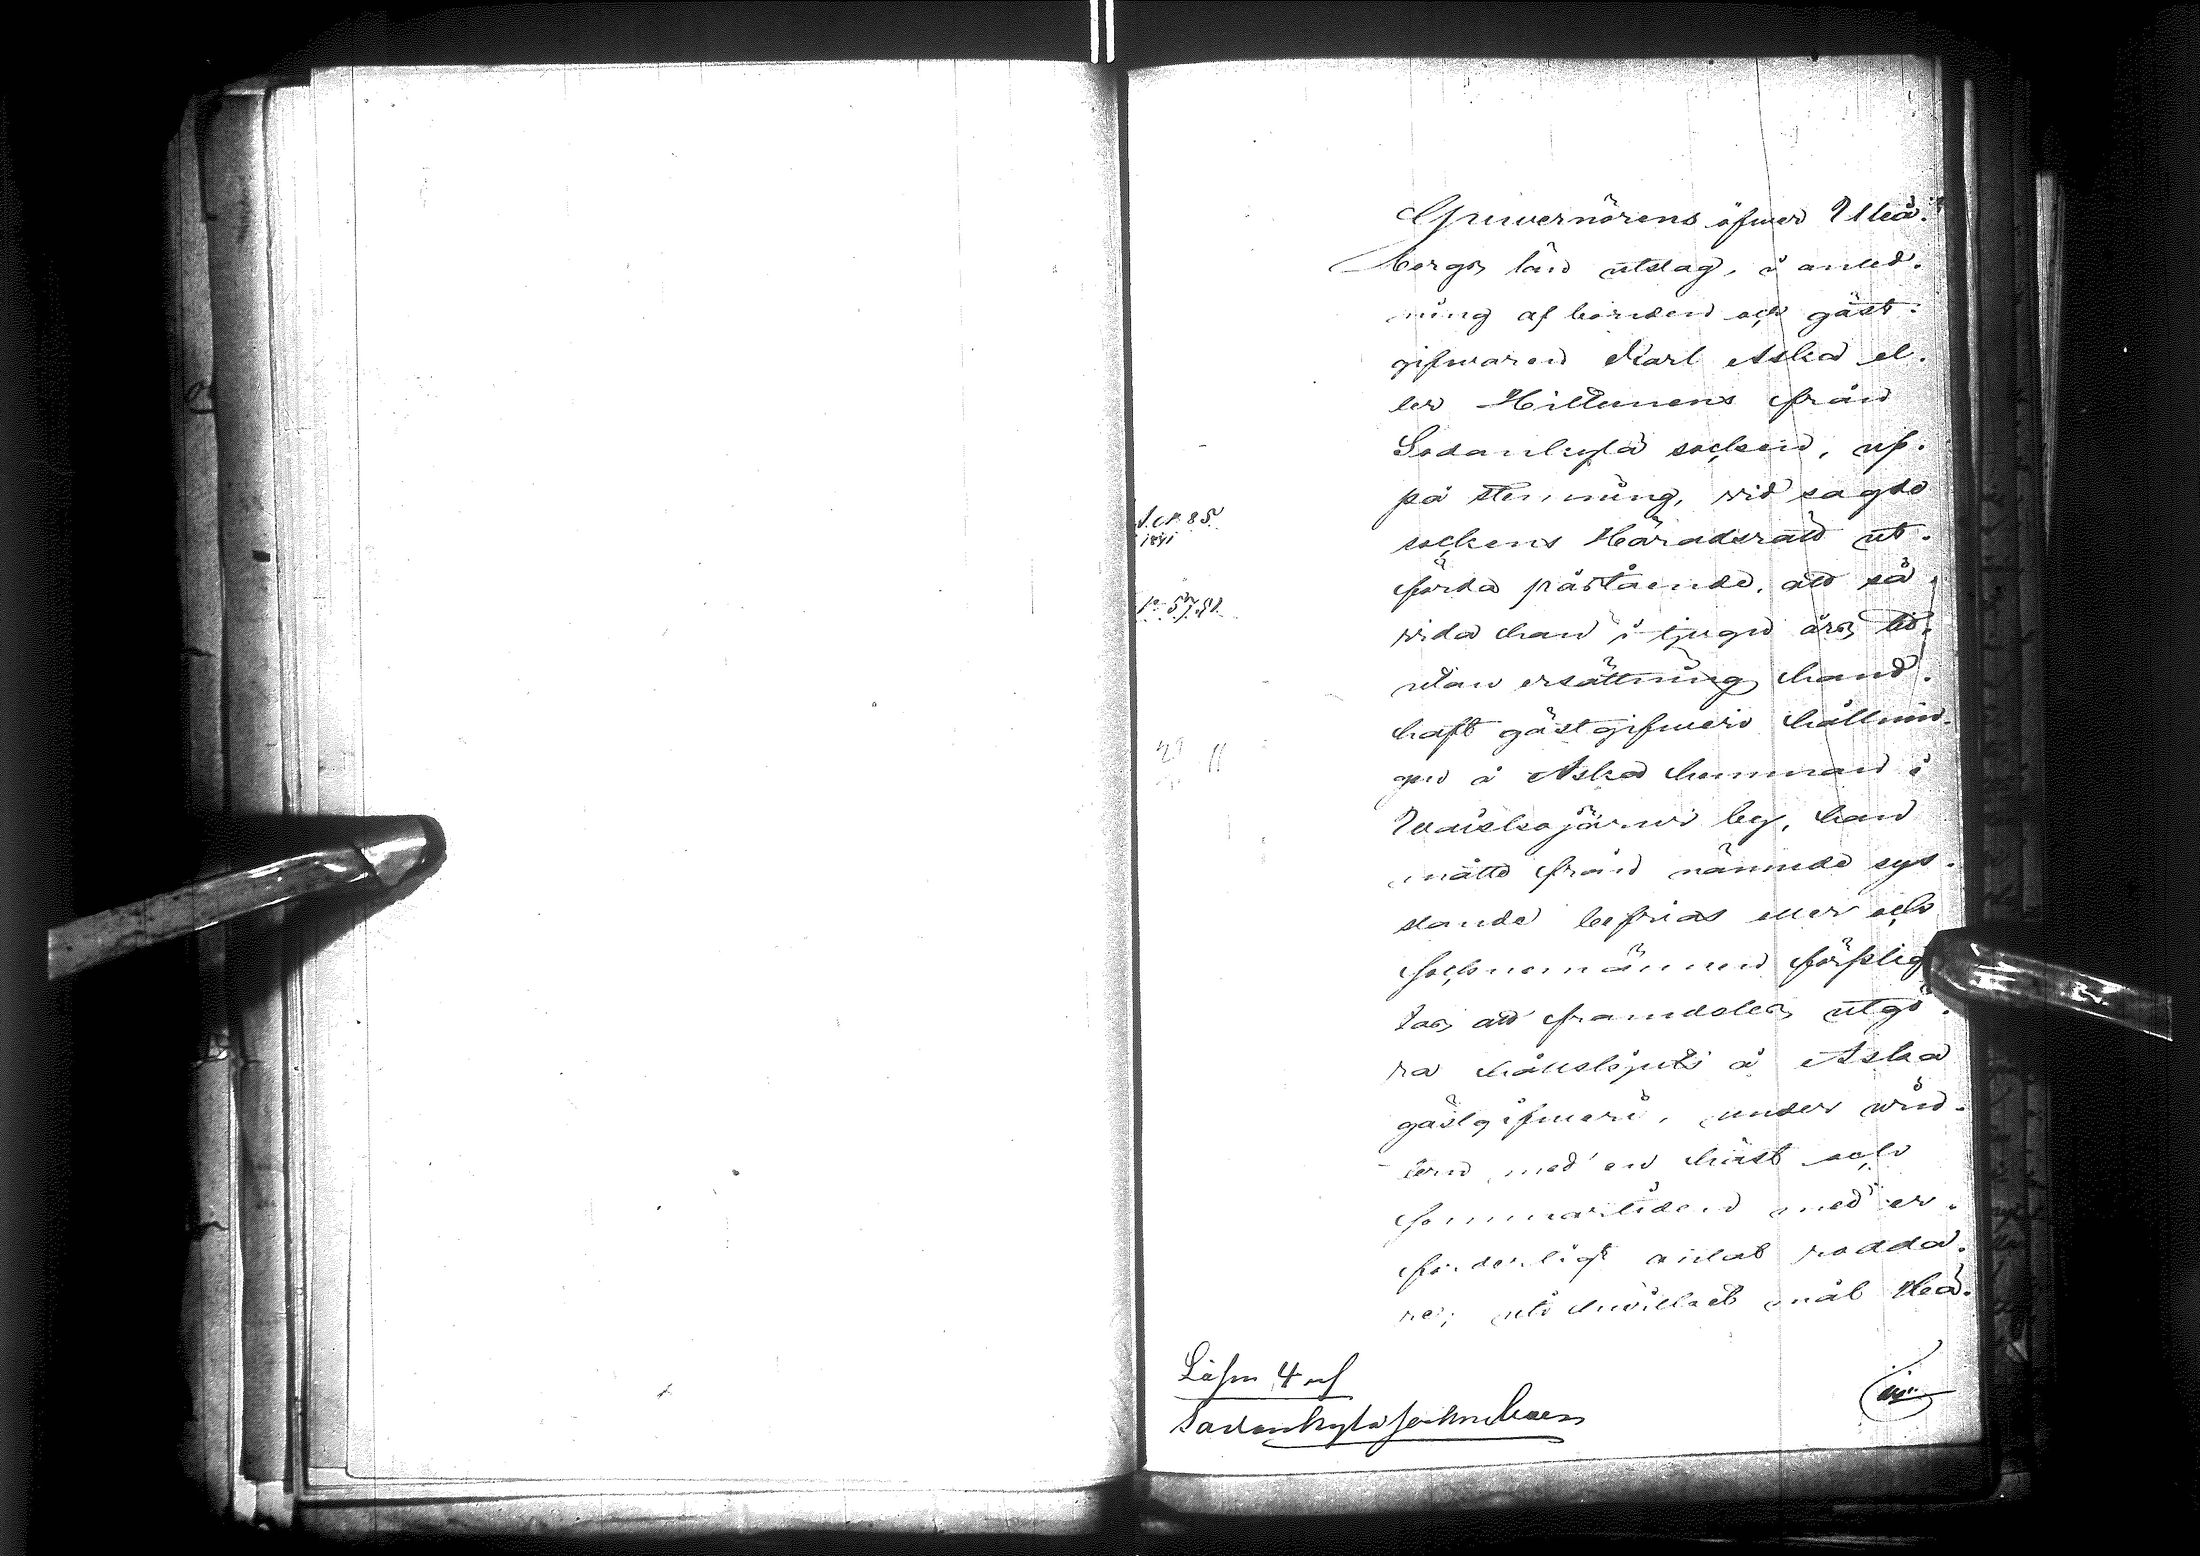 Guvernörens öfwer Uleå-
borgs län utslag, i anled-
ning af bonden och gäst-
gifwaren Karl Aska el-
ler Hiltunens från
Sodankylä socken, up-
på stemning, wid sagde
sockens Häradsrätt ut-
förda påstående, att så-
wida han i tjugu års tid
utan ersättning hand-
haft gästgifweri hållnin-
gen å Aska hemman i
Waiskojärwi by, han
måtte från nämnde sys-
sland befrias eller och
socknemännen förplig-
tas att framdeles utgö-
ra hållskjuts å Aska
gästgifweri, under win-
tern med en häst och
sommartiden med er-
forderligt antal rodda-
re; uti hwilket mål Hä-
Lösen 4 rf
Sodankylä sockneboer